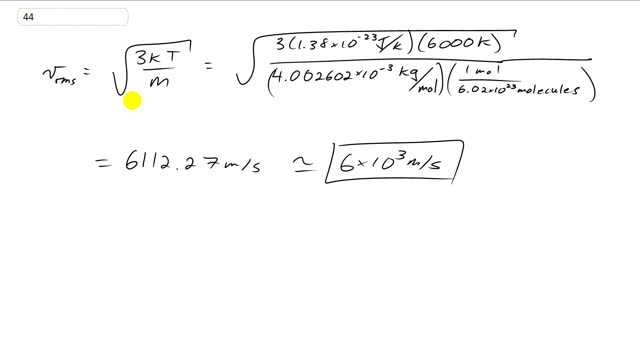 44
v_rms = √(3kT/m) = √(3(1.38×10^-23 J/k)(6000K)/((4.002602×10^-3 kg/mol)(1 mol/6.02×10^23 molecules)))
= 6112.27 m/s ≃ 6×10^3 m/s